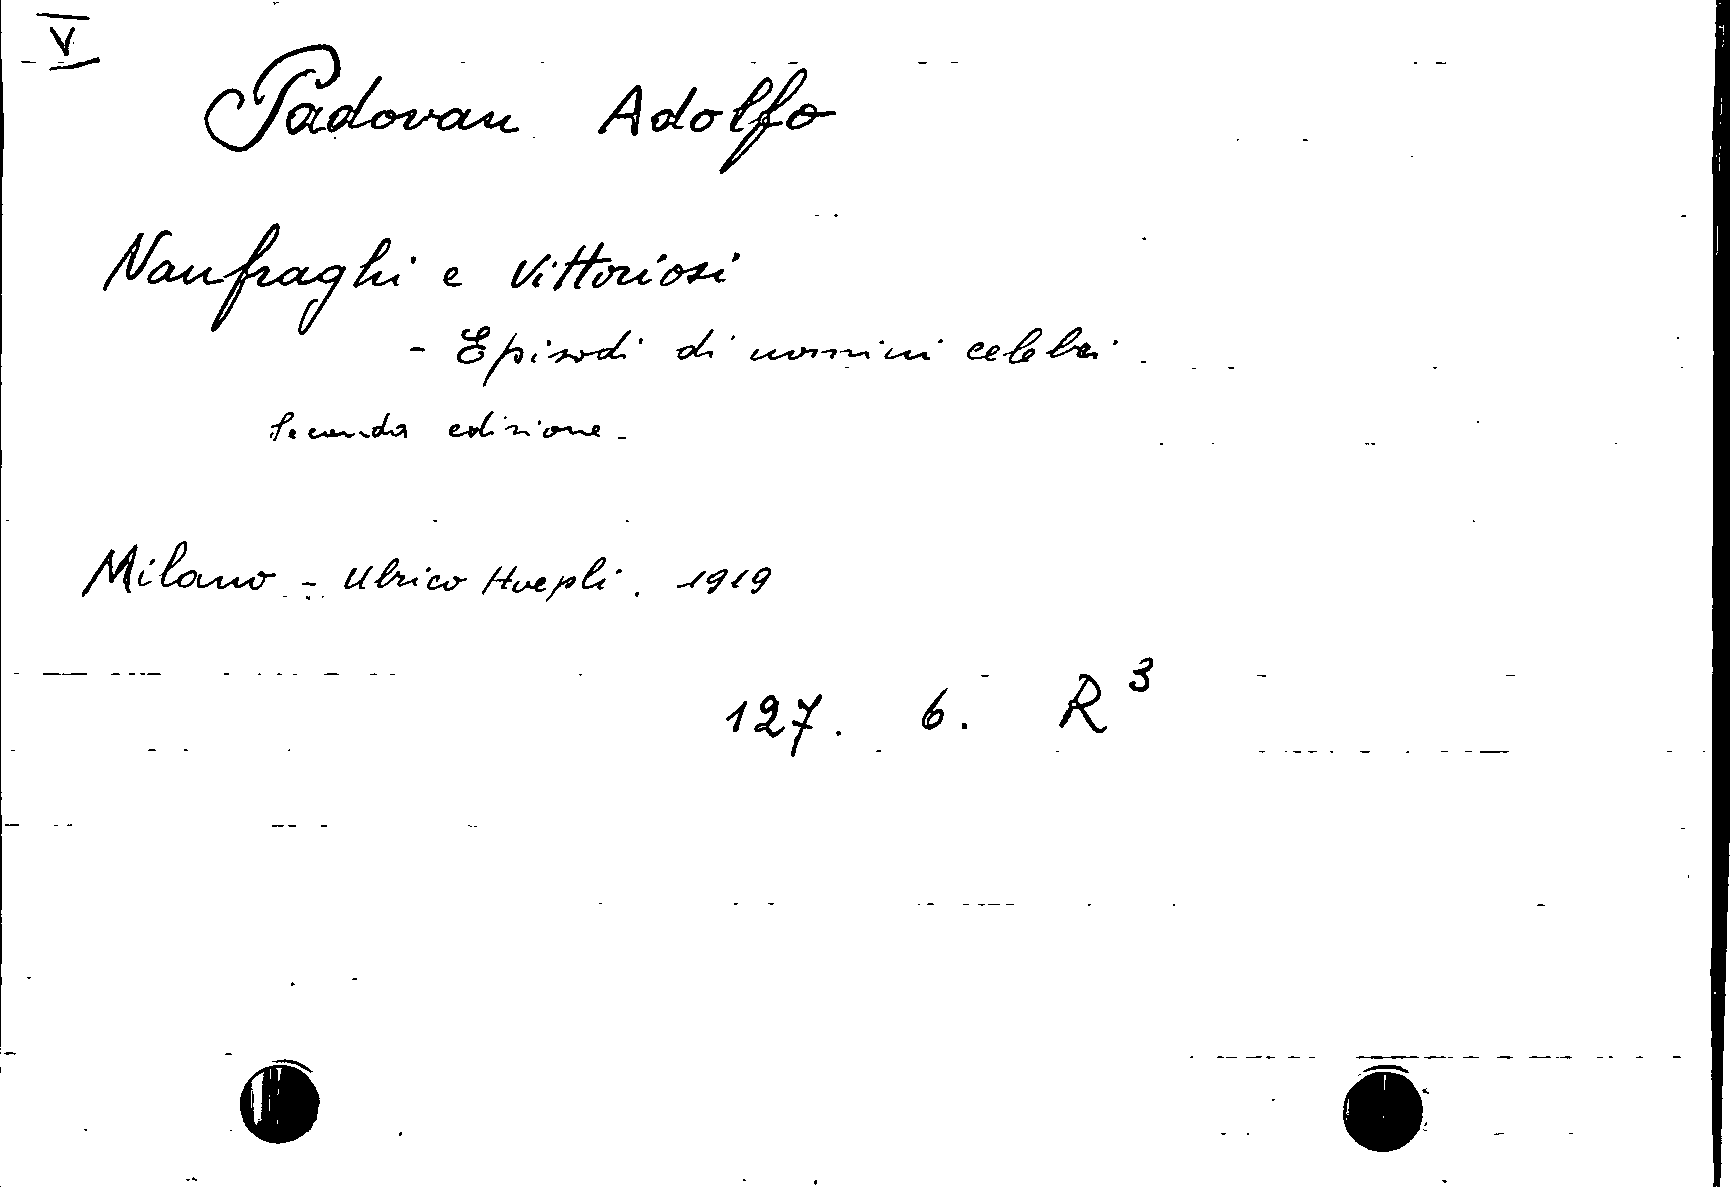 V
Padovan Adolfo
Naufraghi e Vittoriosi
- Episodi di uomini celebri.
Seconda edizione.
Milano - Ulrico Hoepli. 1919
127. 6. R³